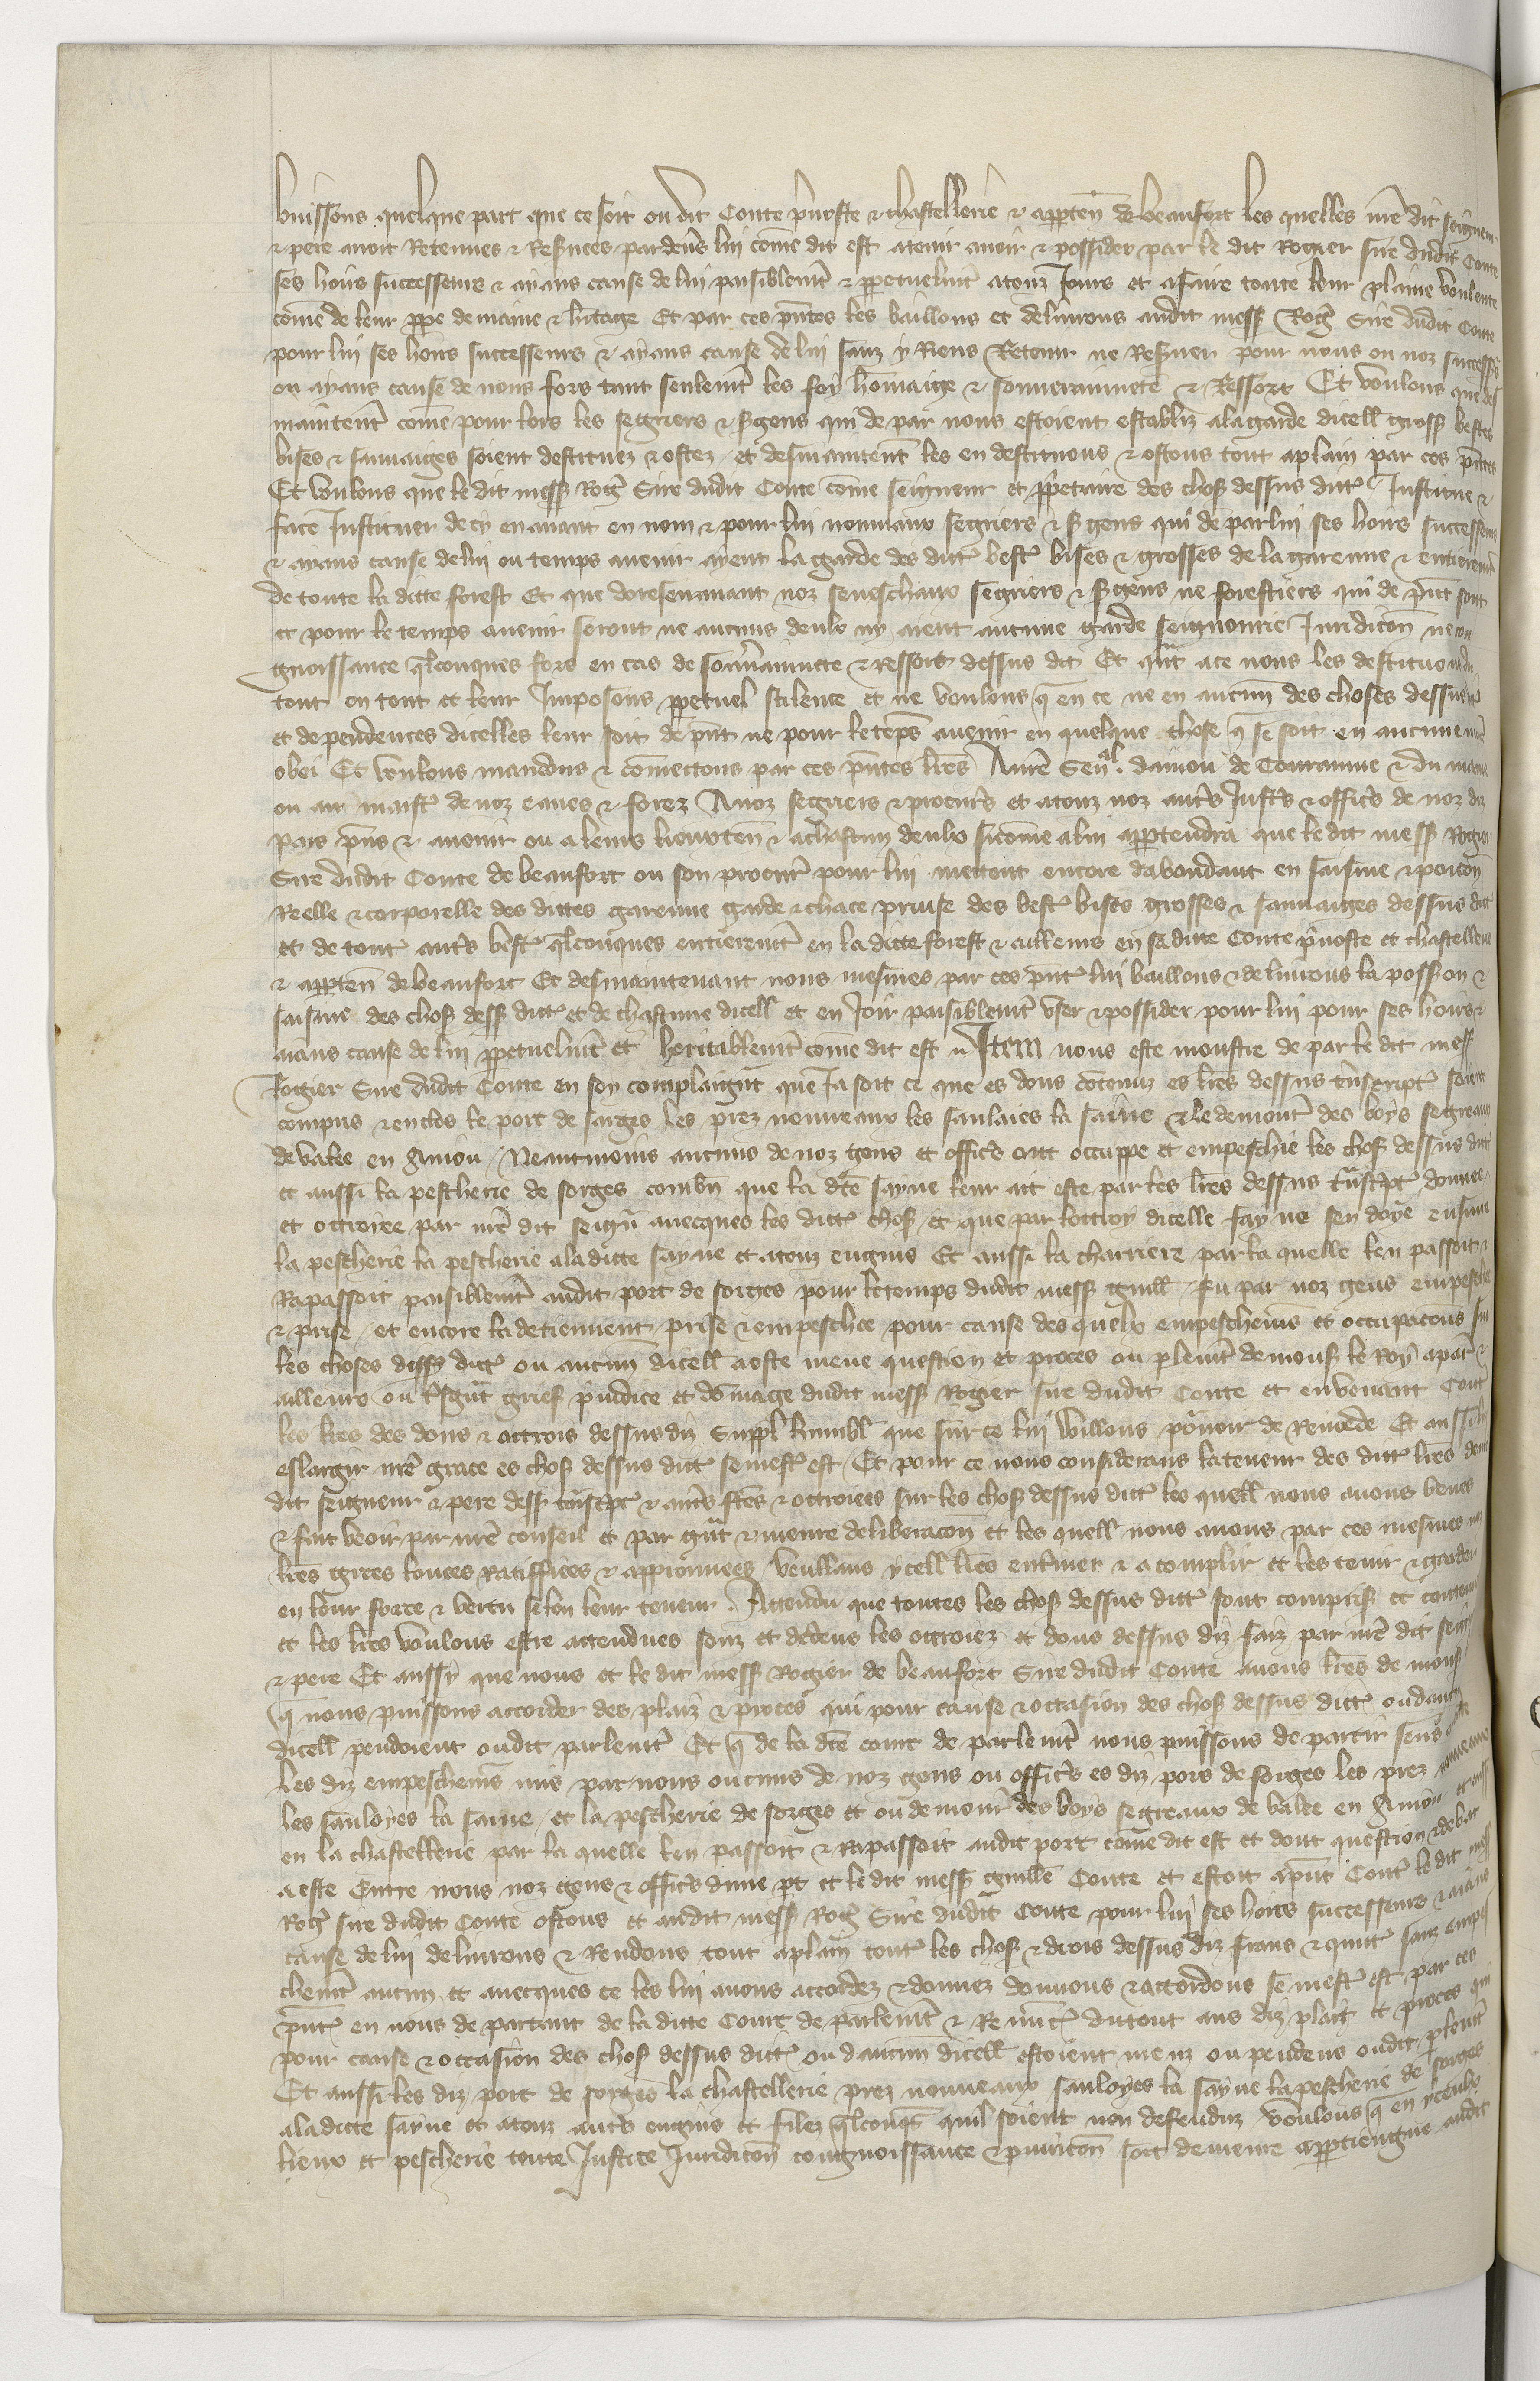 buissons quelque part que ce soit ou dit Conte pruoste & chastellerie & apptn de beaufort les quelles nre dit seigneur
& pere auoit Retenues & Resuees pardeus lui come dit est atenir auoir & possider par le dit Rogier sire dudit Conte
ses hoirs successeurs & ayans cause de lui paisiblemt & ppetuelmt atouz Jours et afaire toute leur plaine voulente
come de leur ppe demaine & hitage Et par ces pntes les baillons et deliurons audit mess Rog Sire dudit Conte
pour lui ses hoirs successeurs & ayans cause de lui sanz y Riens Retenir ne Resuer pour nous ou noz success
ou ayans cause de nous fors tant seulemt les foy homaige & souuerainnete & Ressort Et voulons que des
maintent come pour lors les segriers & sgens qui de par nous estoient establiz alagarde dicell gross bestes
bises & sauuaiges soient destituez & ostez et desmaintent les en destituons & ostons tout aplain par ces pntes
Et voulons que le dit mess Rog Sire dudit Conte come seigneur et ppetaire des chos dessus ditt Institue &
face Instituer de cy enauant en nom & pour lui nouuaux segriers & sgens qui de par lui ses hoirs successeurs
& ayans cause de lui ou temps auenir ayent la garde des ditt best bises & grosses de la garenne & entieremt
de toute la ditte forest Et que doresenauant noz seneschaux segriers & sgens ne forestiers qui de pnt sont
et pour le temps auenir seront ne aucuns deulx ny aient aucune garde seignourie Juridicon ne con
gnoissance qlconques fors en cas de souuainnete & Ressort dessus dit Et qnt ace nous les destituons du
tout en tout et leur Imposons ppetuel scilence et ne voulons q en ce ne en aucun des choses dessus d
et dependences dicelles leur soit de pnt ne pour le teps auenir en quelque chose q se soit en aucune me
obei Et voulons mandons & comettons par ces pntes lres Anre Senal damou de Touraine & du maine
ou au maist de noz eaues & forez Anoz segriers & procurs et atouz noz autrs Justs & officrs de noz diz
Pais pns & auenir ou aleurs lieuxten & achascun deulx sicome alui apptendra que le dit mess Rogier
Sire dudit Conte de beaufort ou son procur pour lui mettent encore dabondant en saisine & possion
Reelle & corporelle des dittes garenne garde & chace prinse des best bises grosses & sauuaiges dessus dit
et de tout autrs best qlconques entieremt en la ditte forest & ailleurs en sa ditte Conte pruoste et chastellerie
& apptn de beaufort Et desmaintenant nous mesmes par ces pnt lui baillons & deliurons la possion &
saisine des chos dess ditt et de chascune dicell et en Joir paisiblemt user & possider pour lui pour ses hoirs &
aians cause de lui ppetuelmt et heritablemt come dit est Item nous este monstre de par le dit mess
Rogier Sire dudit Conte en soy complaignt que Ja soit ce que es dons contenuz es lres dessus transcript soient
compris & enclos le port de sorges les prez nouueaux les saulaies la saine & le demourt des boys segreaux
de valee en Aniou Neantmoins aucuns de noz gens et officrs ont occuppe et empeschie les chos dessus dit
et aussi la pescherie de sorges combn que la dte sayne leur ait este par les lres dessus transcpt donnee
et ottroiee par nre dit seign auecques les ditt chos et que par lottroy dicelle sayne sen doye ensuiure
la pescherie la pescherie ala ditte sayne et atouz engins Et aussi la charriere par la quelle len passoit &
Rapassoit paisiblemt audit port de sorges pour le temps dudit mess guill fu par noz gens empeschee
& prise et encore la detiennent prise & empeschee pour cause des quelx empeschemens et occupacons sur
les choses dess ditt ou aucun dicell aeste meue question et proces ou plemt de mons le Roy apar &
ailleurs ou tsgrant grief preiudice et domage dudit mess Rogier sire dudit Conte et en venant Cont
les lres des dons & ottrois dessusdiz Suppl humbl que sur ce lui vuillons pouruoir de Remede Et aussi lui
eslargir nre grace es chos dessus ditt se mest est Et pour ce nous considerans lateneur des ditt lres de nre
dit seigneur & pere dess transcpt & autrs ftes & ottroiees sur les chos dessus ditt les quell nous auons veues
& fait veoir par nre conseil et par grant & meure deliberacon et les quell nous auons par ces mesmes noz
lres grees louees Ratiffiees & approuuees veullans ycell lres entiner & acomplir et les tenir & garder
en leur force & vertu selon leur teneur Attendu que toutes les chos dessus ditt sont compris et contenues
et les lres voulons estre attendues souz et dedens les ottroiez et dons dessus diz faiz par nre dit seign
& pere Et aussy que nous et le dit mess Rogier de beaufort Sire dudit Conte auons lres de mons
q nous puissons accorder des plaiz & proces qui pour cause & occasion des chos dessus ditt ou daucun
dicell pendoient oudit parlemt Et q de la dte court de parlemt nous puissons de partir sens
les diz empeschems mis par nous ou cuns de noz gens ou officrs es diz pors de sorges les prez nouueaux
les sauloyes la saine et la pescherie de sorges et ou demour des boys segreaux de valee en Aniou et aussi
en la chastellerie par la quelle len passoit & Rapassoit audit port come dit est et dont question & debat
aeste Entre nous noz gens & officrs dune pt et le dit mess guille Conte et estoit apnt Cont le dit mess
Rog sire dudit Conte ostons et audit mess Rog Sire dudit Conte pour lui ses hoirs successeurs & aians
cause de lui deliurons & Rendons tout aplain tout les chos & drois dessus diz frans & quitt sanz empes
chemt aucun et auecques ce les lui auons accordez & donnez donnons & accordons se mest est par ces
pnt en nous de partant de la ditte Court de parlemt & Renunc dutout aus diz plaiz et proces qui
pour cause & occasion des chos dessus ditt ou daucun dicell estoient meuz ou pendens oudit plemt
Et aussi les diz port de sorges la chastellerie prez nouueaux sauloyes la sayne la pescherie de sorges
ala ditte sayne et atouz autrs engins et filez qlconqs quil soient non defenduz voulons q en yceulx
lieux et pescherie toute Justice Juridicon congnoissance & punicon soit demeure apptiengne audit